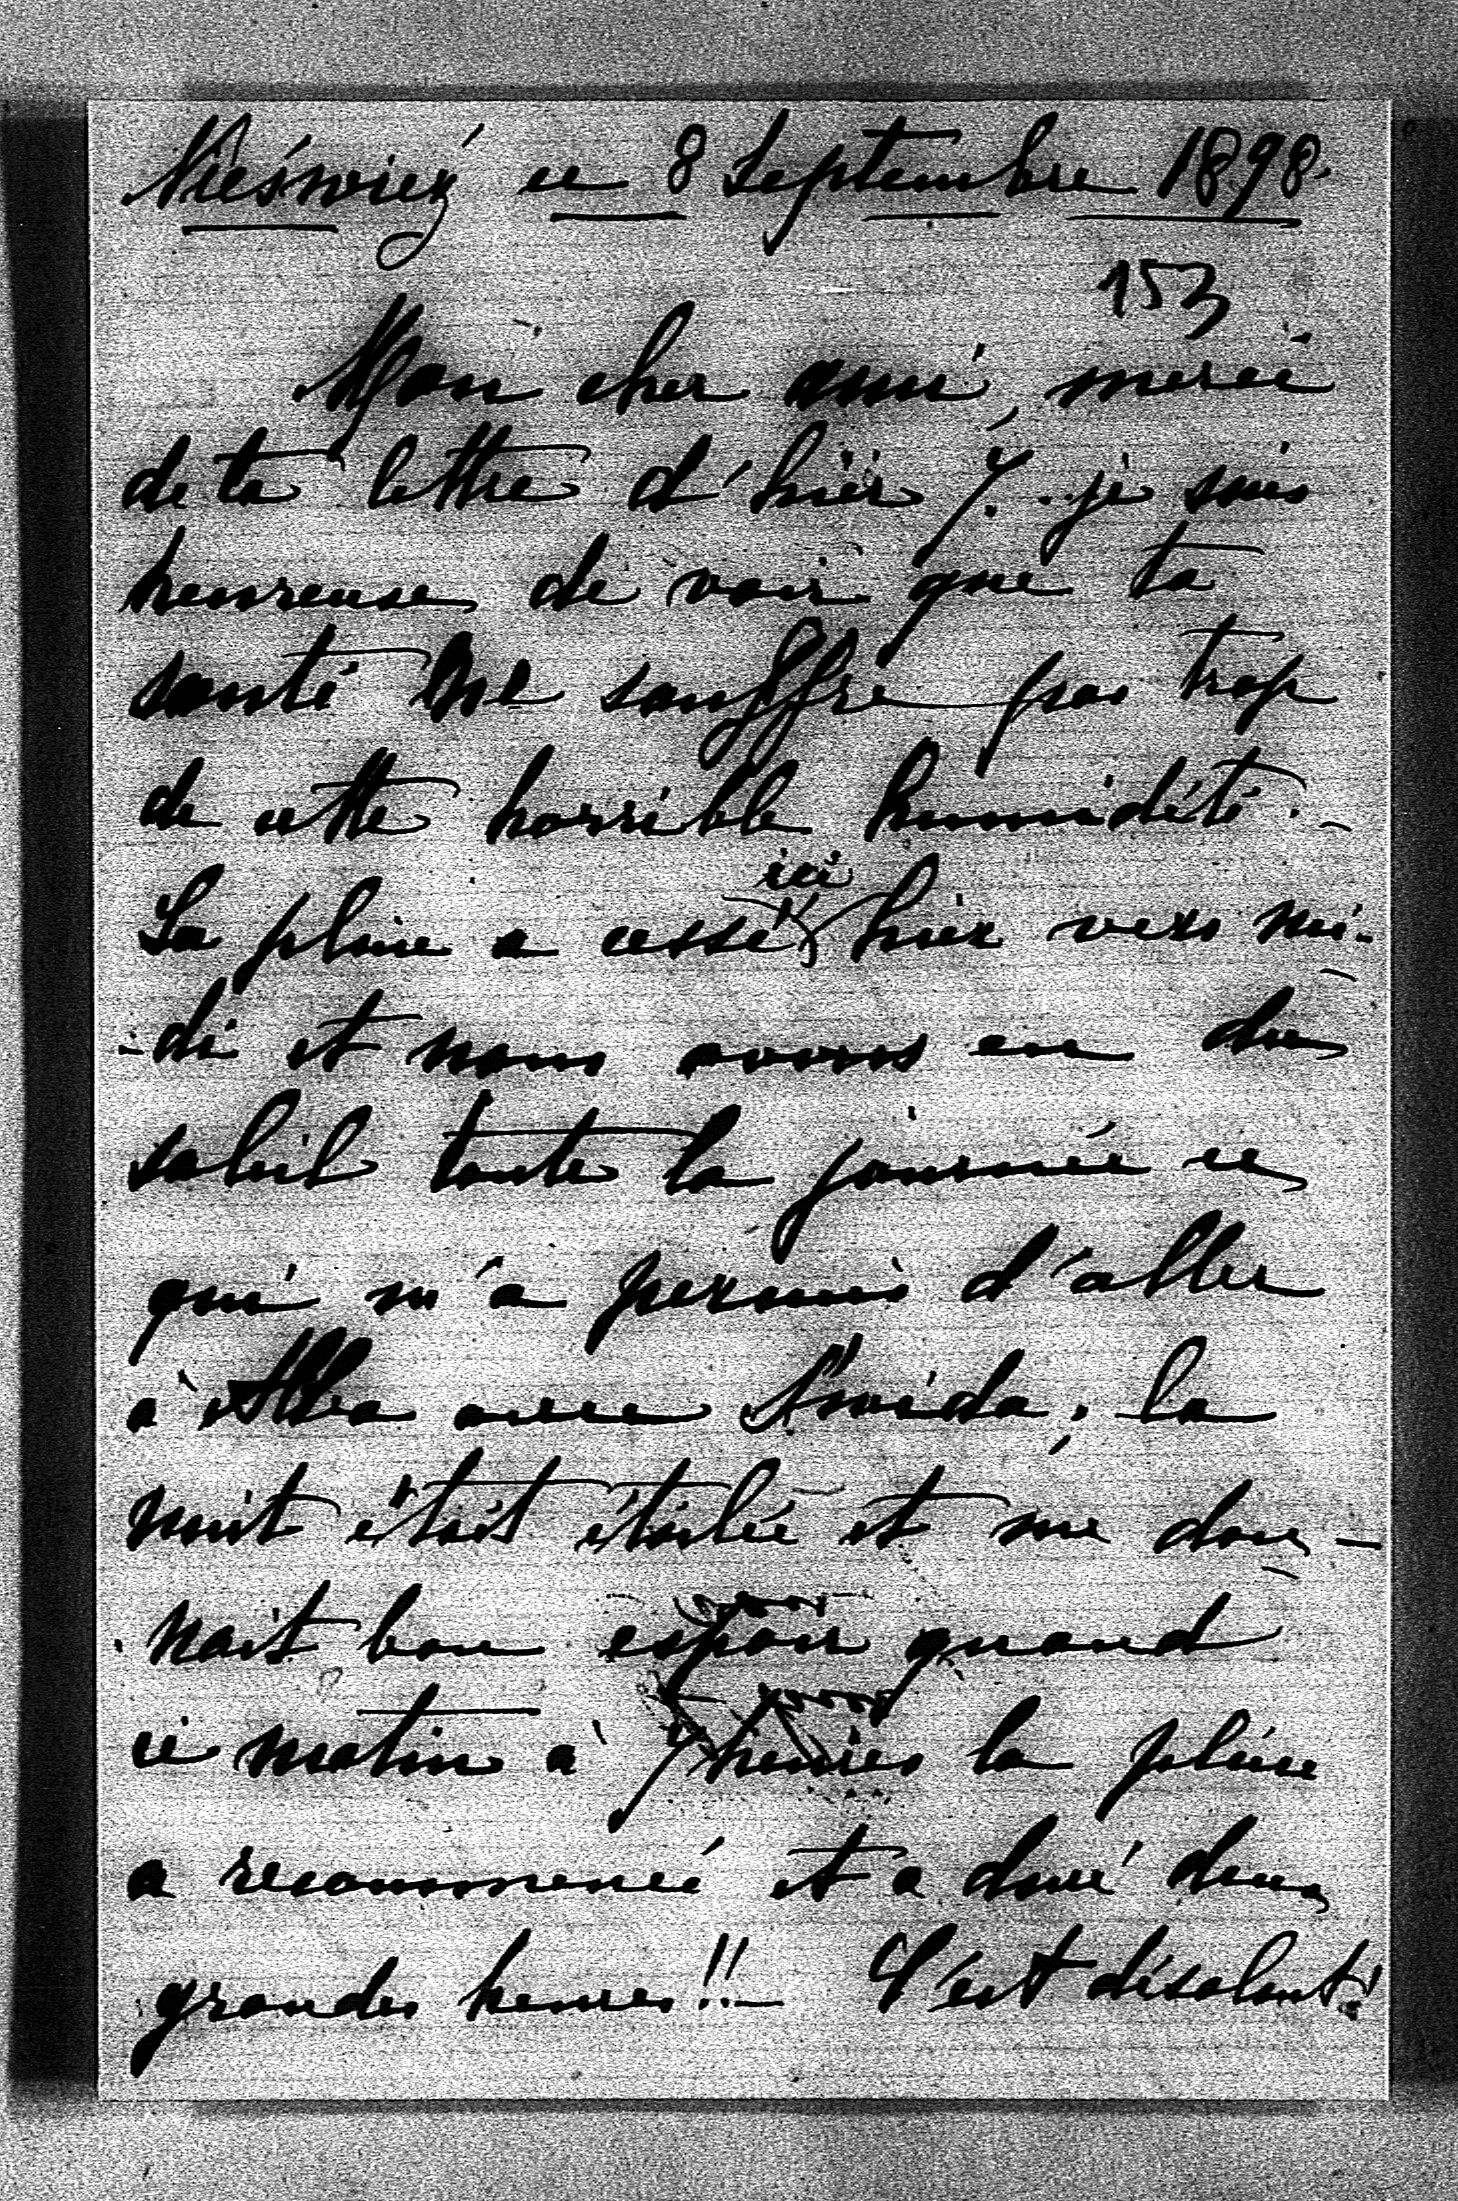 Nieświeź ce 8 Septembre 1898.
153
Mon cher ami, merci
de ta lettre d'hier 7. je suis
heureuse de voir que ta
santé ne souffre pas trop
de cette horrible humidité. -
La pluie a cessé ici hier vers mi-
-di et nous avons eu du
soleil toute la journée ce
qui m'a permis d'aller
à Alba avec ; la
nuit était étoilée et me don-
nait bon espoir quand
ce matin à 7 heures la pluie
a recommencé et a duré deux
grandes heures!! - C'est désolant!